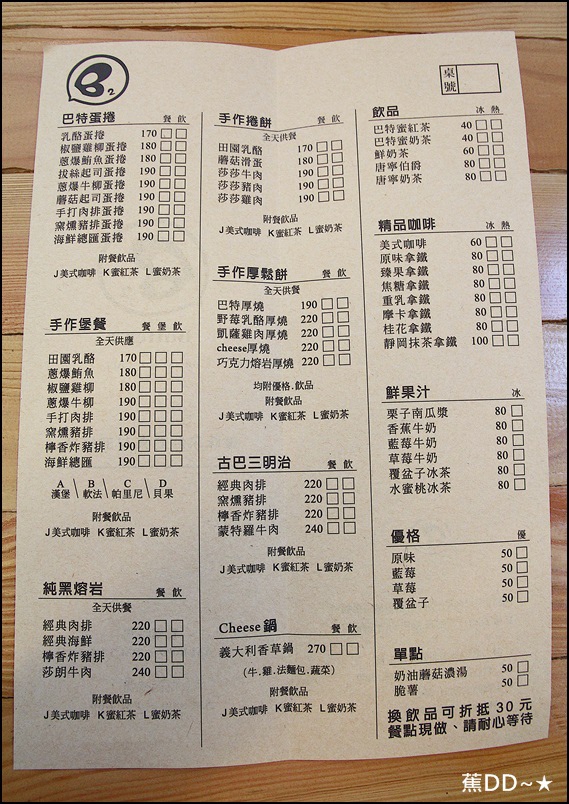 B2
桌號
巴特蛋捲 餐 飲
乳酪蛋捲 170 □ □
椒鹽雞柳蛋捲 180 □ □
蔥爆鮪魚蛋捲 180 □ □
拔絲起司蛋捲 190 □ □
蔥爆牛柳蛋捲 190 □ □
蘑菇起司蛋捲 190 □ □
手打肉排蛋捲 190 □ □
窯燻豬排蛋捲 190 □ □
海鮮總匯蛋捲 190 □ □
附餐飲品
J 美式咖啡 K 蜜紅茶 L 蜜奶茶
手作堡餐 餐 堡 飲
全天供應
田園乳酪 170 □ □ □
蔥爆鮪魚 180 □ □ □
椒鹽雞柳 180 □ □ □
蔥爆牛柳 190 □ □ □
手打肉排 190 □ □ □
窯燻豬排 190 □ □ □
檸香炸豬排 190 □ □ □
海鮮總匯 190 □ □ □
A \ B \ C \ D
漢堡 \ 軟法 \ 帕里尼 \ 貝果
附餐飲品
J 美式咖啡 K 蜜紅茶 L 蜜奶茶
純黑熔岩 餐 飲
全天供餐
經典肉排 220 □ □
經典海鮮 220 □ □
檸香炸豬排 220 □ □
莎朗牛肉 240 □ □
附餐飲品
J 美式咖啡 K 蜜紅茶 L 蜜奶茶
手作捲餅 餐 飲
全天供餐
田園乳酪 170 □ □
蘑菇滑蛋 180 □ □
莎莎牛肉 190 □ □
莎莎豬肉 190 □ □
莎莎雞肉 190 □ □
附餐飲品
J 美式咖啡 K 蜜紅茶 L 蜜奶茶
手作厚鬆餅 餐 飲
全天供餐
巴特厚燒 190 □ □
野莓乳酪厚燒 220 □ □
凱薩雞肉厚燒 220 □ □
cheese厚燒 220 □ □
巧克力熔岩厚燒 220 □ □
均附優格.飲品
附餐飲品
J 美式咖啡 K 蜜紅茶 L 蜜奶茶
古巴三明治 餐 飲
經典肉排 220 □ □
窯燻豬排 220 □ □
檸香炸豬排 220 □ □
蒙特羅牛肉 240 □ □
附餐飲品
J 美式咖啡 K 蜜紅茶 L 蜜奶茶
Cheese 鍋 餐 飲
義大利香草鍋 270 □ □
(牛.雞.法麵包.蔬菜)
附餐飲品
J 美式咖啡 K 蜜紅茶 L 蜜奶茶
飲品 冰 熱
巴特蜜紅茶 40 □ □
巴特蜜奶茶 40 □ □
鮮奶茶 60 □ □
唐寧伯爵 80 □ □
唐寧奶茶 80 □ □
精品咖啡 冰 熱
美式咖啡 60 □ □
原味拿鐵 80 □ □
臻果拿鐵 80 □ □
焦糖拿鐵 80 □ □
重乳拿鐵 80 □ □
摩卡拿鐵 80 □ □
桂花拿鐵 80 □ □
靜岡抹茶拿鐵 100 □ □
鮮果汁 冰
栗子南瓜漿 80 □
香蕉牛奶 80 □
藍莓牛奶 80 □
草莓牛奶 80 □
覆盆子冰茶 80 □
水蜜桃冰茶 80 □
優格 優
原味 50 □
藍莓 50 □
草莓 50 □
覆盆子 50 □
單點
奶油蘑菇濃湯 50 □
脆薯 50 □
換飲品可折抵30元
餐點現做、請耐心等待
蕉DD~★